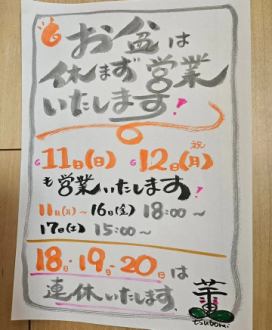 お盆は
休まず営業
いたします!
11日(日) 12日(月)祝
も営業いたします!
11日(日)〜16日(金) 18:00〜
17日(土) 15:00〜
18日・19日・20日は
連休いたします。
tsubomi